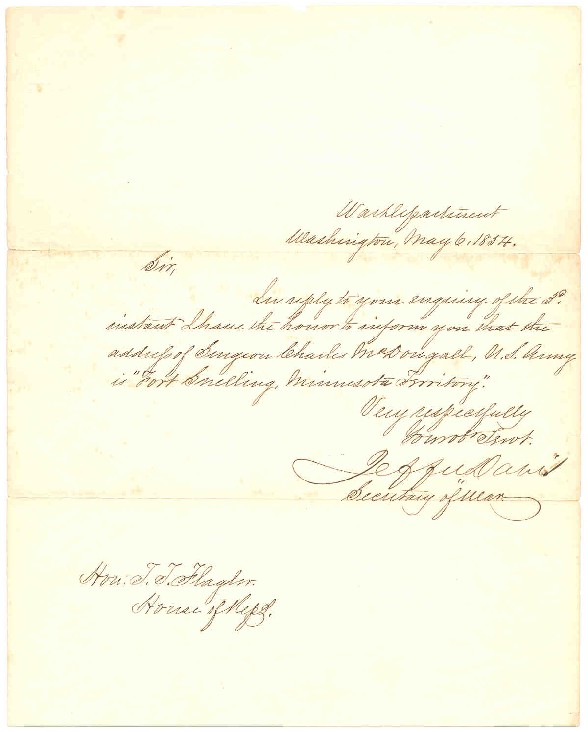 War Department
Washington, May 6, 1854.
Sir,
In reply to your enquiry of the 3d.
instant I have the honor to inform you that the
address of Surgeon Charles McDougall, U.S. Army
is "Fort Snelling, Minnesota Territory."
Very respectfully
Your obt. Servt.
Jeffn Davis
Secretary of War
Hon: T. T. Flagler.
House of Reps.